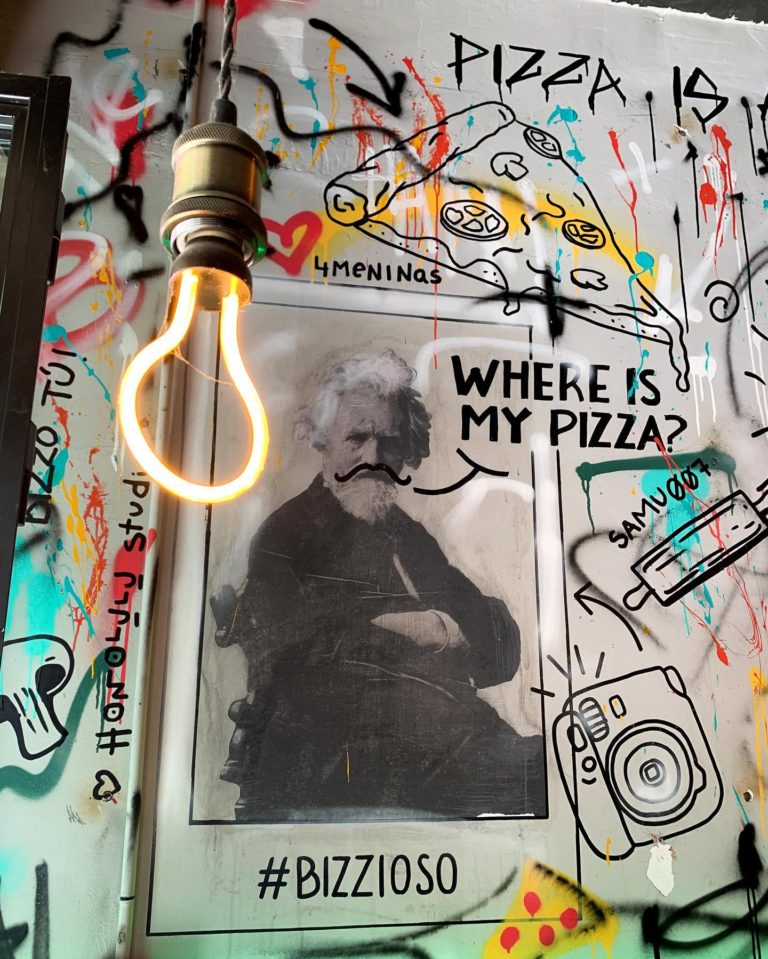 PIZZA IS
4MENINAS
WHERE IS
MY PIZZA?
SAMU007
BIZZO TÚ!
HONOLULU studi
#BIZZIOSO